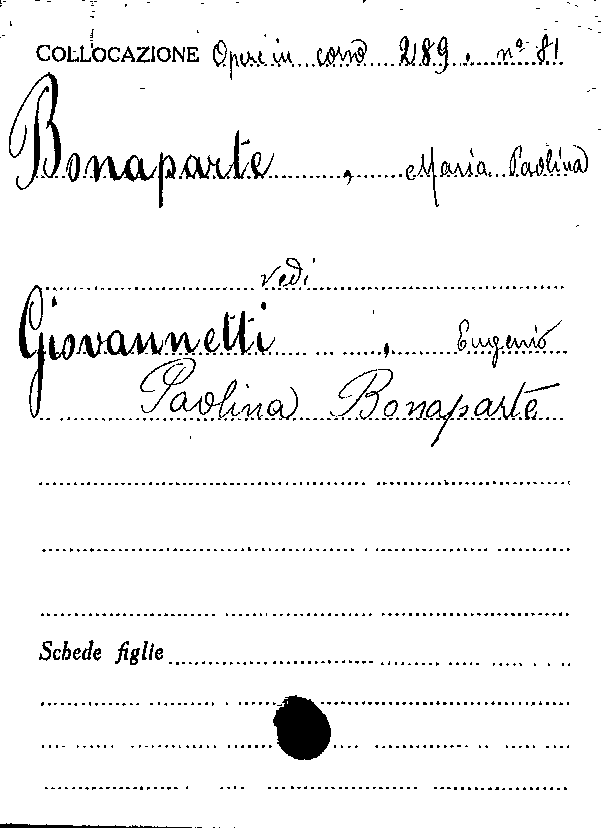 COLLOCAZIONE Opere in corso 289. nº 81
Bonaparte, Maria Paolina
vedi
Giovannetti, Eugenio
Paolina Bonaparte
Schede figlie